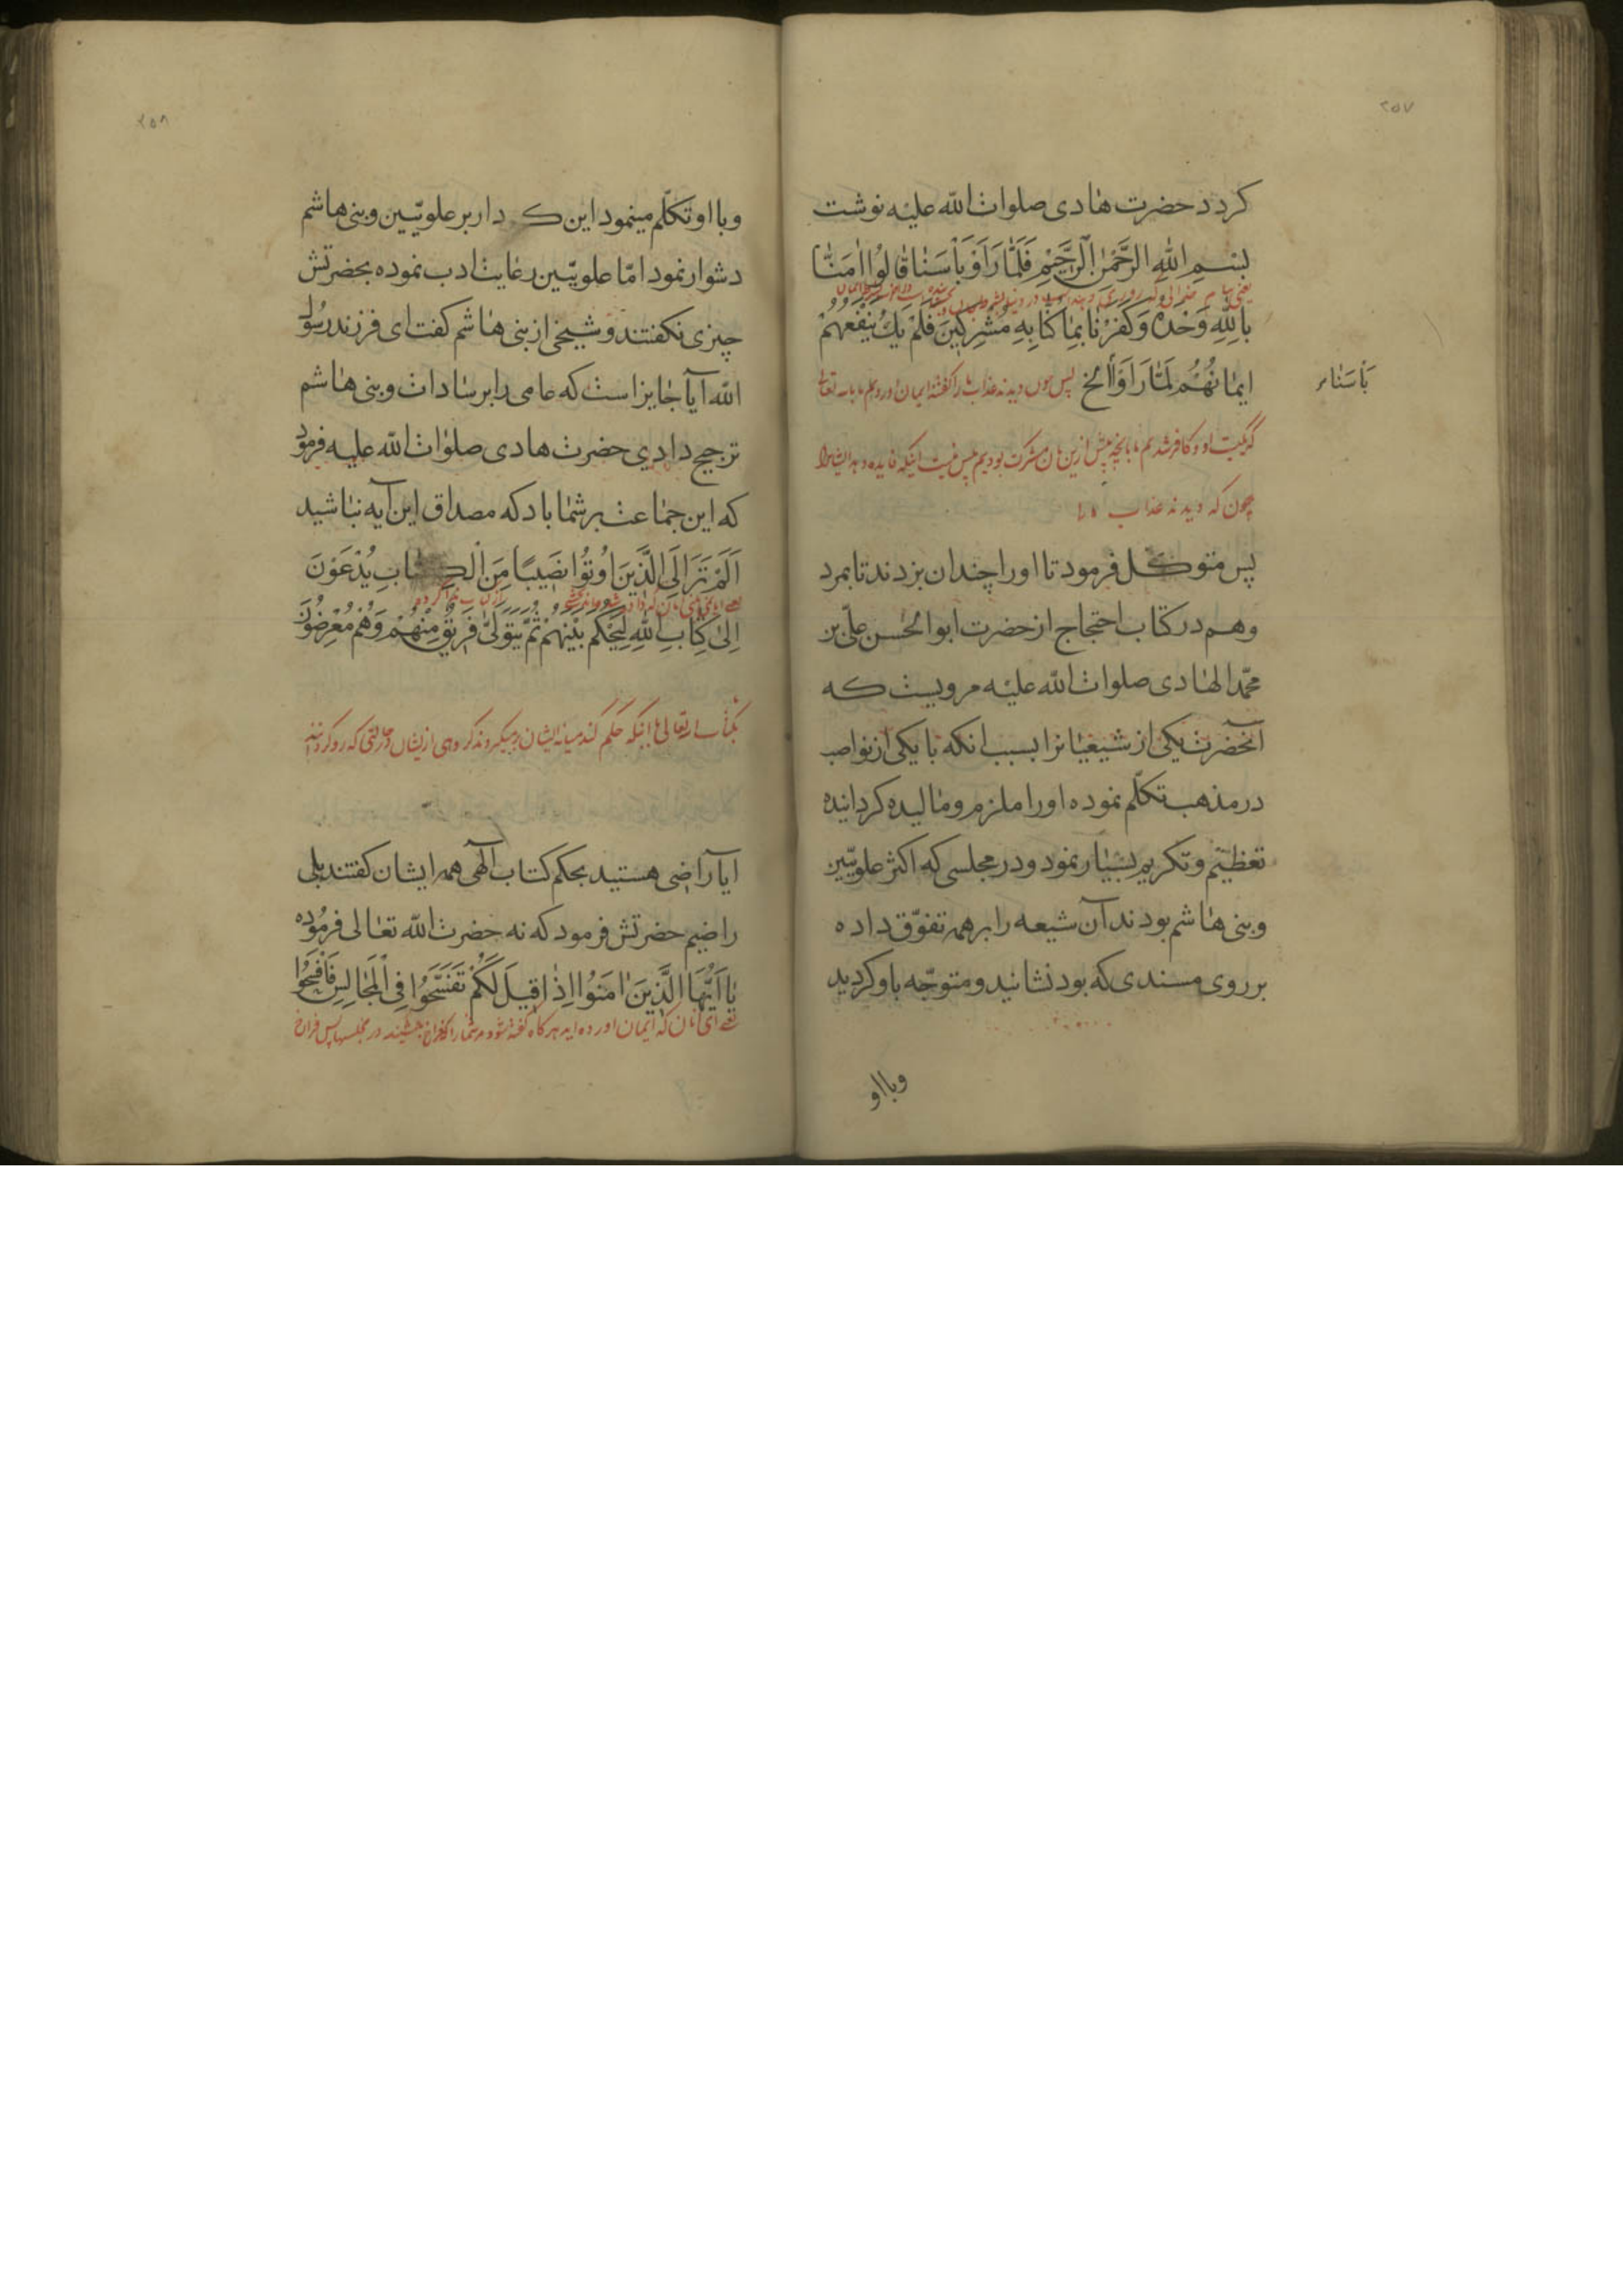 ۲۵۷
کردد حضرت هادی صلوات الله علیه نوشت
بِسْمِ اللهِ الرَّحْمٰنِ الرَّحِیْمِ فَلَمَّا رَاَوْ بَاْسَنَا قَالُوْا اٰمَنَّا
بِاللهِ وَحْدَهُ وَکَفَرْنَا بِمَا کُنَّا بِهِ مُشْرِکِیْنَ فَلَمْ یَكُ یَنْفَعُهُمْ
ایمَانُهُمْ لَمَّا رَاَوْا الخ پس چون دیدند عذاب ما را گفتند ایمان اوردیم ما بالله تعالی
بَأسَنَا
او و کافر شدیم بانچه پیش ازین بان مشرک بودیم پس نیست اینکه فایده دهد ایشانرا
چون که دیدند عذاب ما را
پس متوکل فرمود تا اورا چندان بزدند تا بمرد
وهم در کتاب احتجاج از حضرت ابوالحسن علیّ بن
محمّد الهادی صلوات الله علیه مرویست که
آنحضرت یکی از شیعیانرا بسبب انکه با یکی از نواصب
در مذهب تکلّم نموده اورا ملزم و مالیده کردانیده
تعظیم و تکریم بسیار نمود و در مجلسی که اکثر علویّین
و بنی هاشم بودند آن شیعه را بر همه تفوّق داده
بر روی مسندی که بود نشانید و متوجّه باو کردید
وبا او
۲۵۸
وبا او تکلّم مینمود این کردار بر علویّین و بنی هاشم
دشوار نمود امّا علویّین رعایت ادب نموده بحضرتش
چیزی نکفتند و شیخی از بنی هاشم کفت ای فرزند رسُول
الله آیا جایز است که عامی را بر سادات و بنی هاشم
ترجیح دادی حضرت هادی صلوات الله علیه فرمود
که این جماعت بر شما باد که مصداق این آیه نباشید
اَلَمْ تَرَ اِلَی الَّذِیْنَ اُوْتُوْا نَصِیْبًا مِنَ الْکِتَابِ یُدْعَوْنَ
اِلٰی کِتَابِ اللهِ لِیَحْکُمَ بَیْنَهُمْ ثُمَّ یَتَوَلّٰی فَرِیْقٌ مِنْهُمْ وَهُمْ مُعْرِضُوْنَ
بکتاب الله تعالی تا اینکه حکم کند میانه ایشان پس میکردند کروهی از ایشان در حالتی که رو کردانند
ایا راضی هستید بحکم کتاب الهی همه ایشان کفتند بلی
راضیم حضرتش فرمود که نه حضرت الله تعالی فرمُوده
یَا اَیُّهَا الَّذِیْنَ اٰمَنُوْا اِذَا قِیْلَ لَکُمْ تَفَسَّحُوْا فِی الْمَجَالِسِ فَافْسَحُوْا
یعنی ای آنان که ایمان اورده اید هرکاه کفته شود مر شما را که فراخ بنشینید در مجلسها پس فراخ